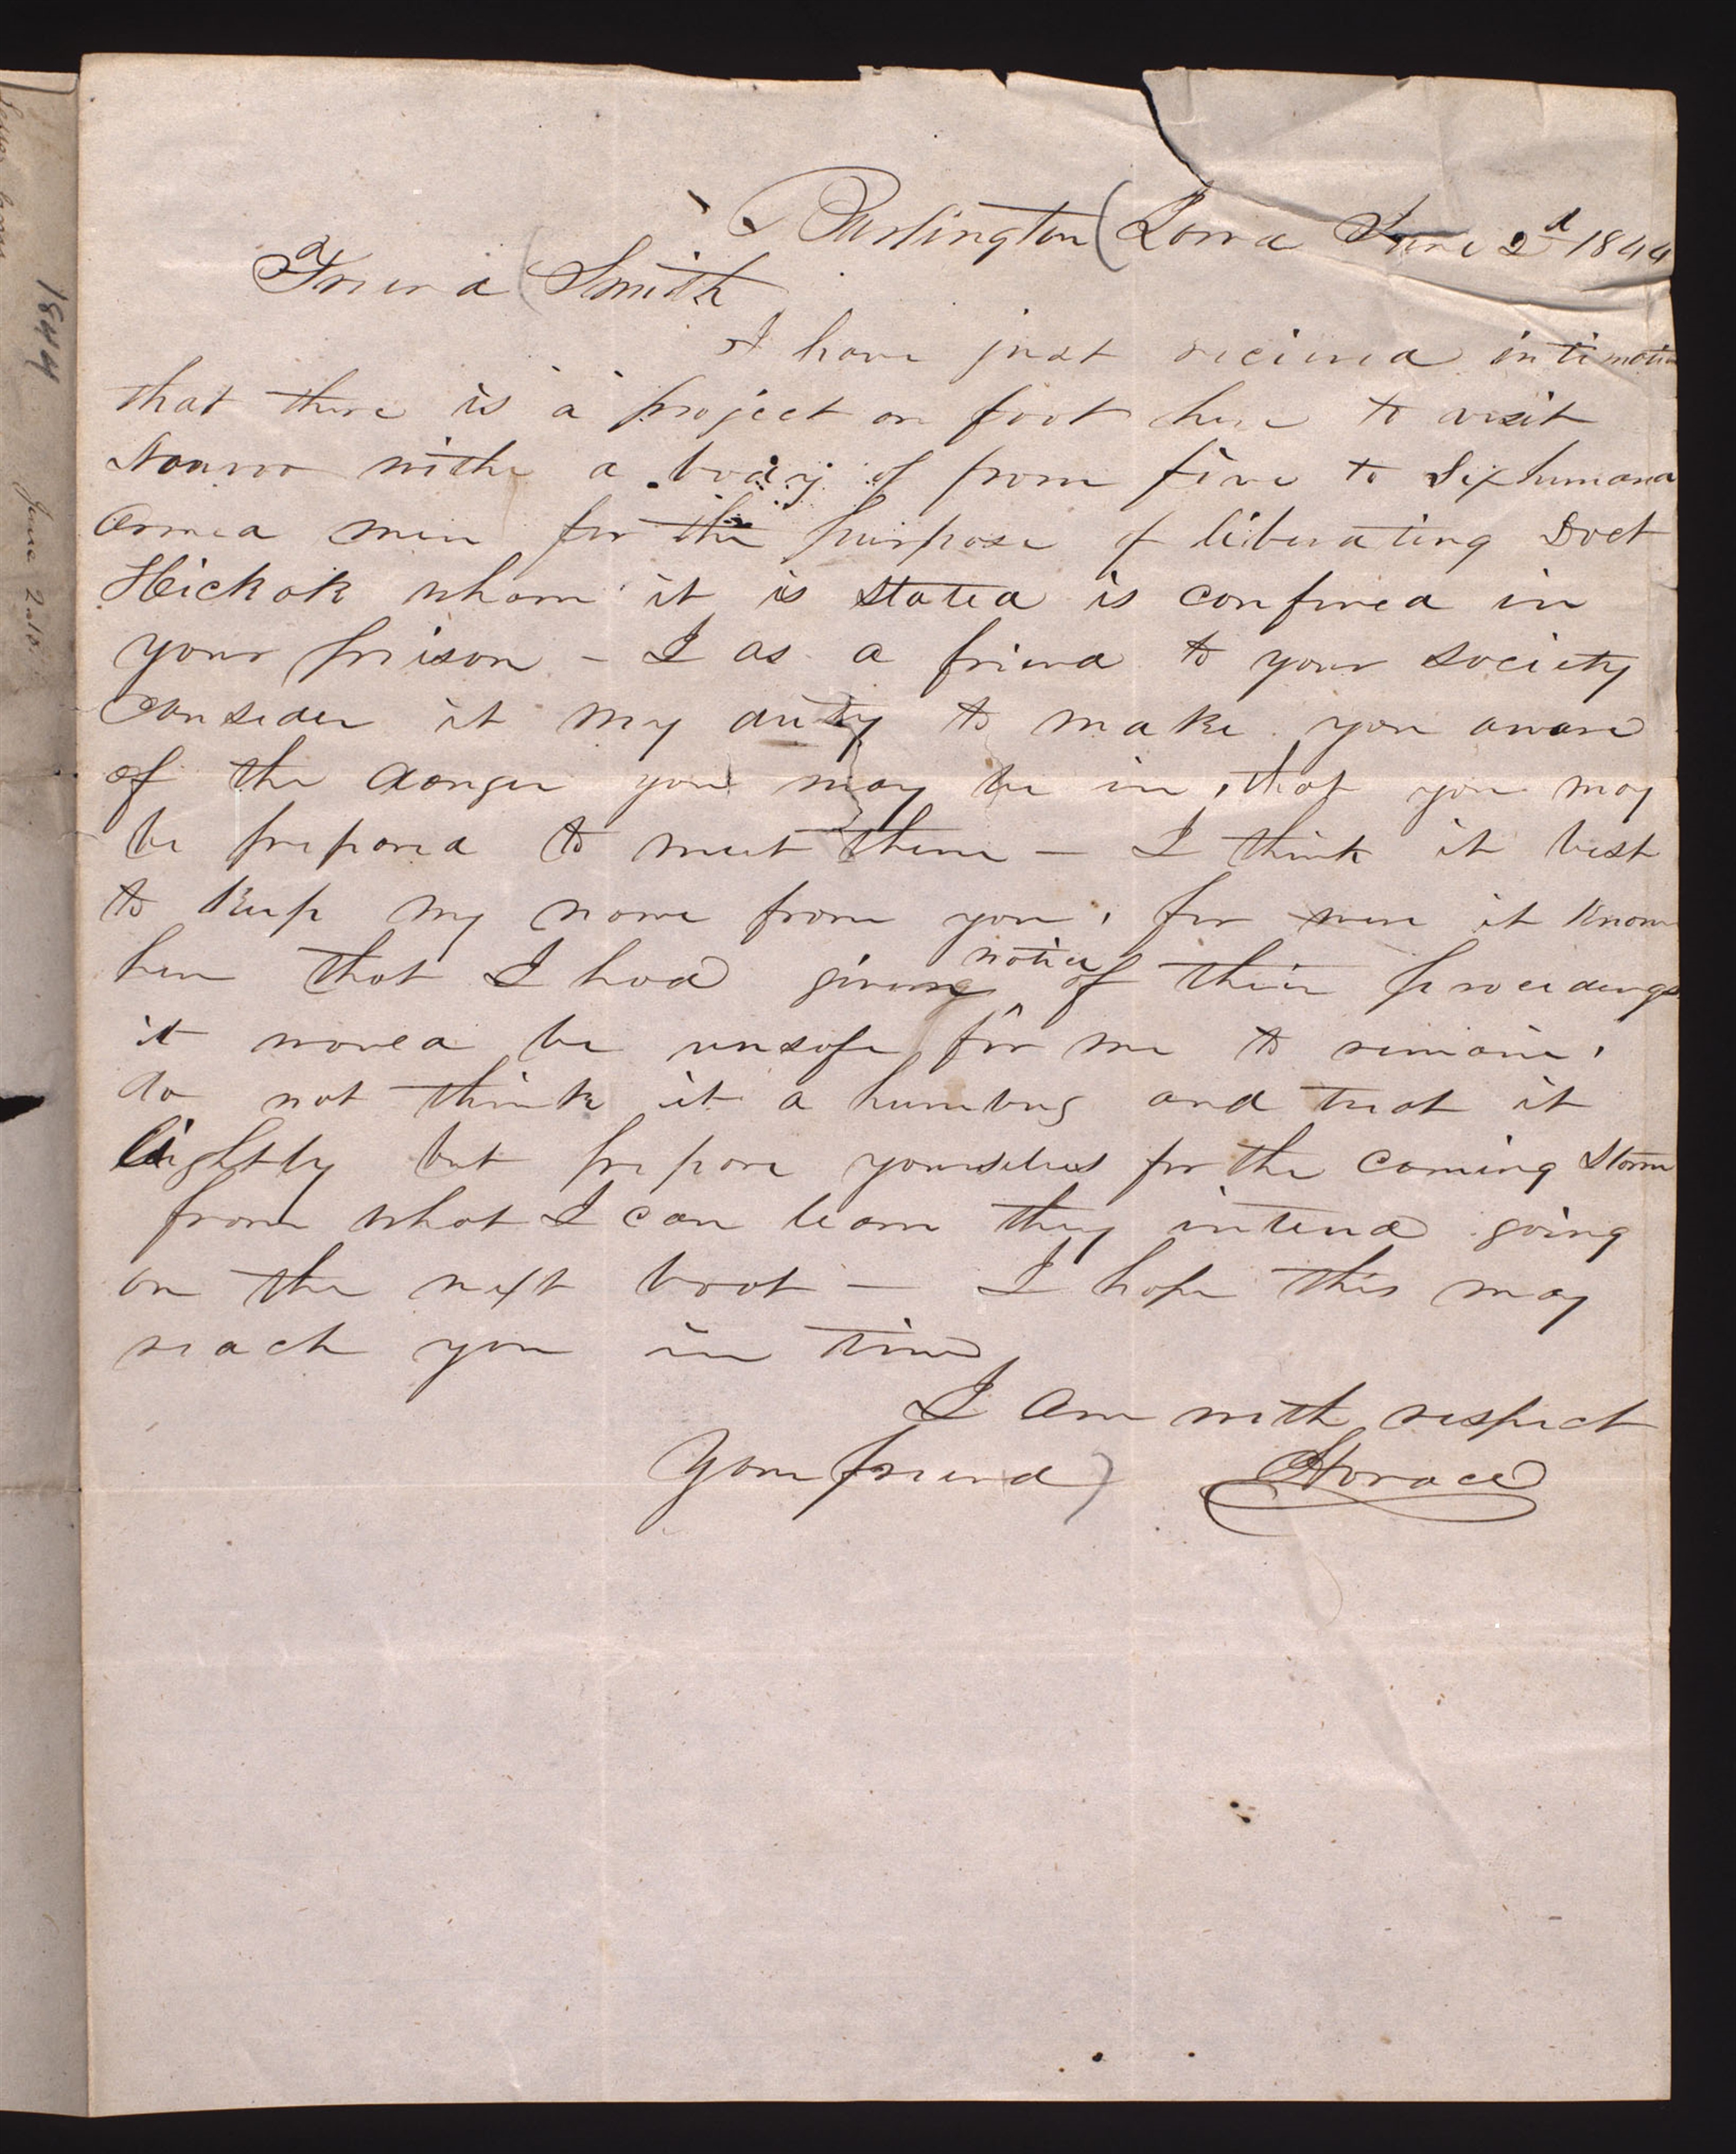 Burlington (Iowa June 2d 1844
Friend Smith
I have just recieved intimation
that there is a project on foot here to visit
Nauvoo withe a body of from five to Six hundred
Armed men for the purpose of liberating Doct
Hickok whom it is stated is confined in
your prison – I as a friend to your society
consider it my duty to make you aware
of the danger you may be in, that you may
be prepared to meet them – I think it best
to keep my name from you, for were it known
here that I had given notice of their proceedings
it would be unsafe for me to remain,
do not think it a humbug and treat it
lightly but prepare yourselves for the coming storm
from what I can learn they intend going
on the next boat – I hope this may
reach you in time
I am with respect
Your friend) Horace
1844
June 2